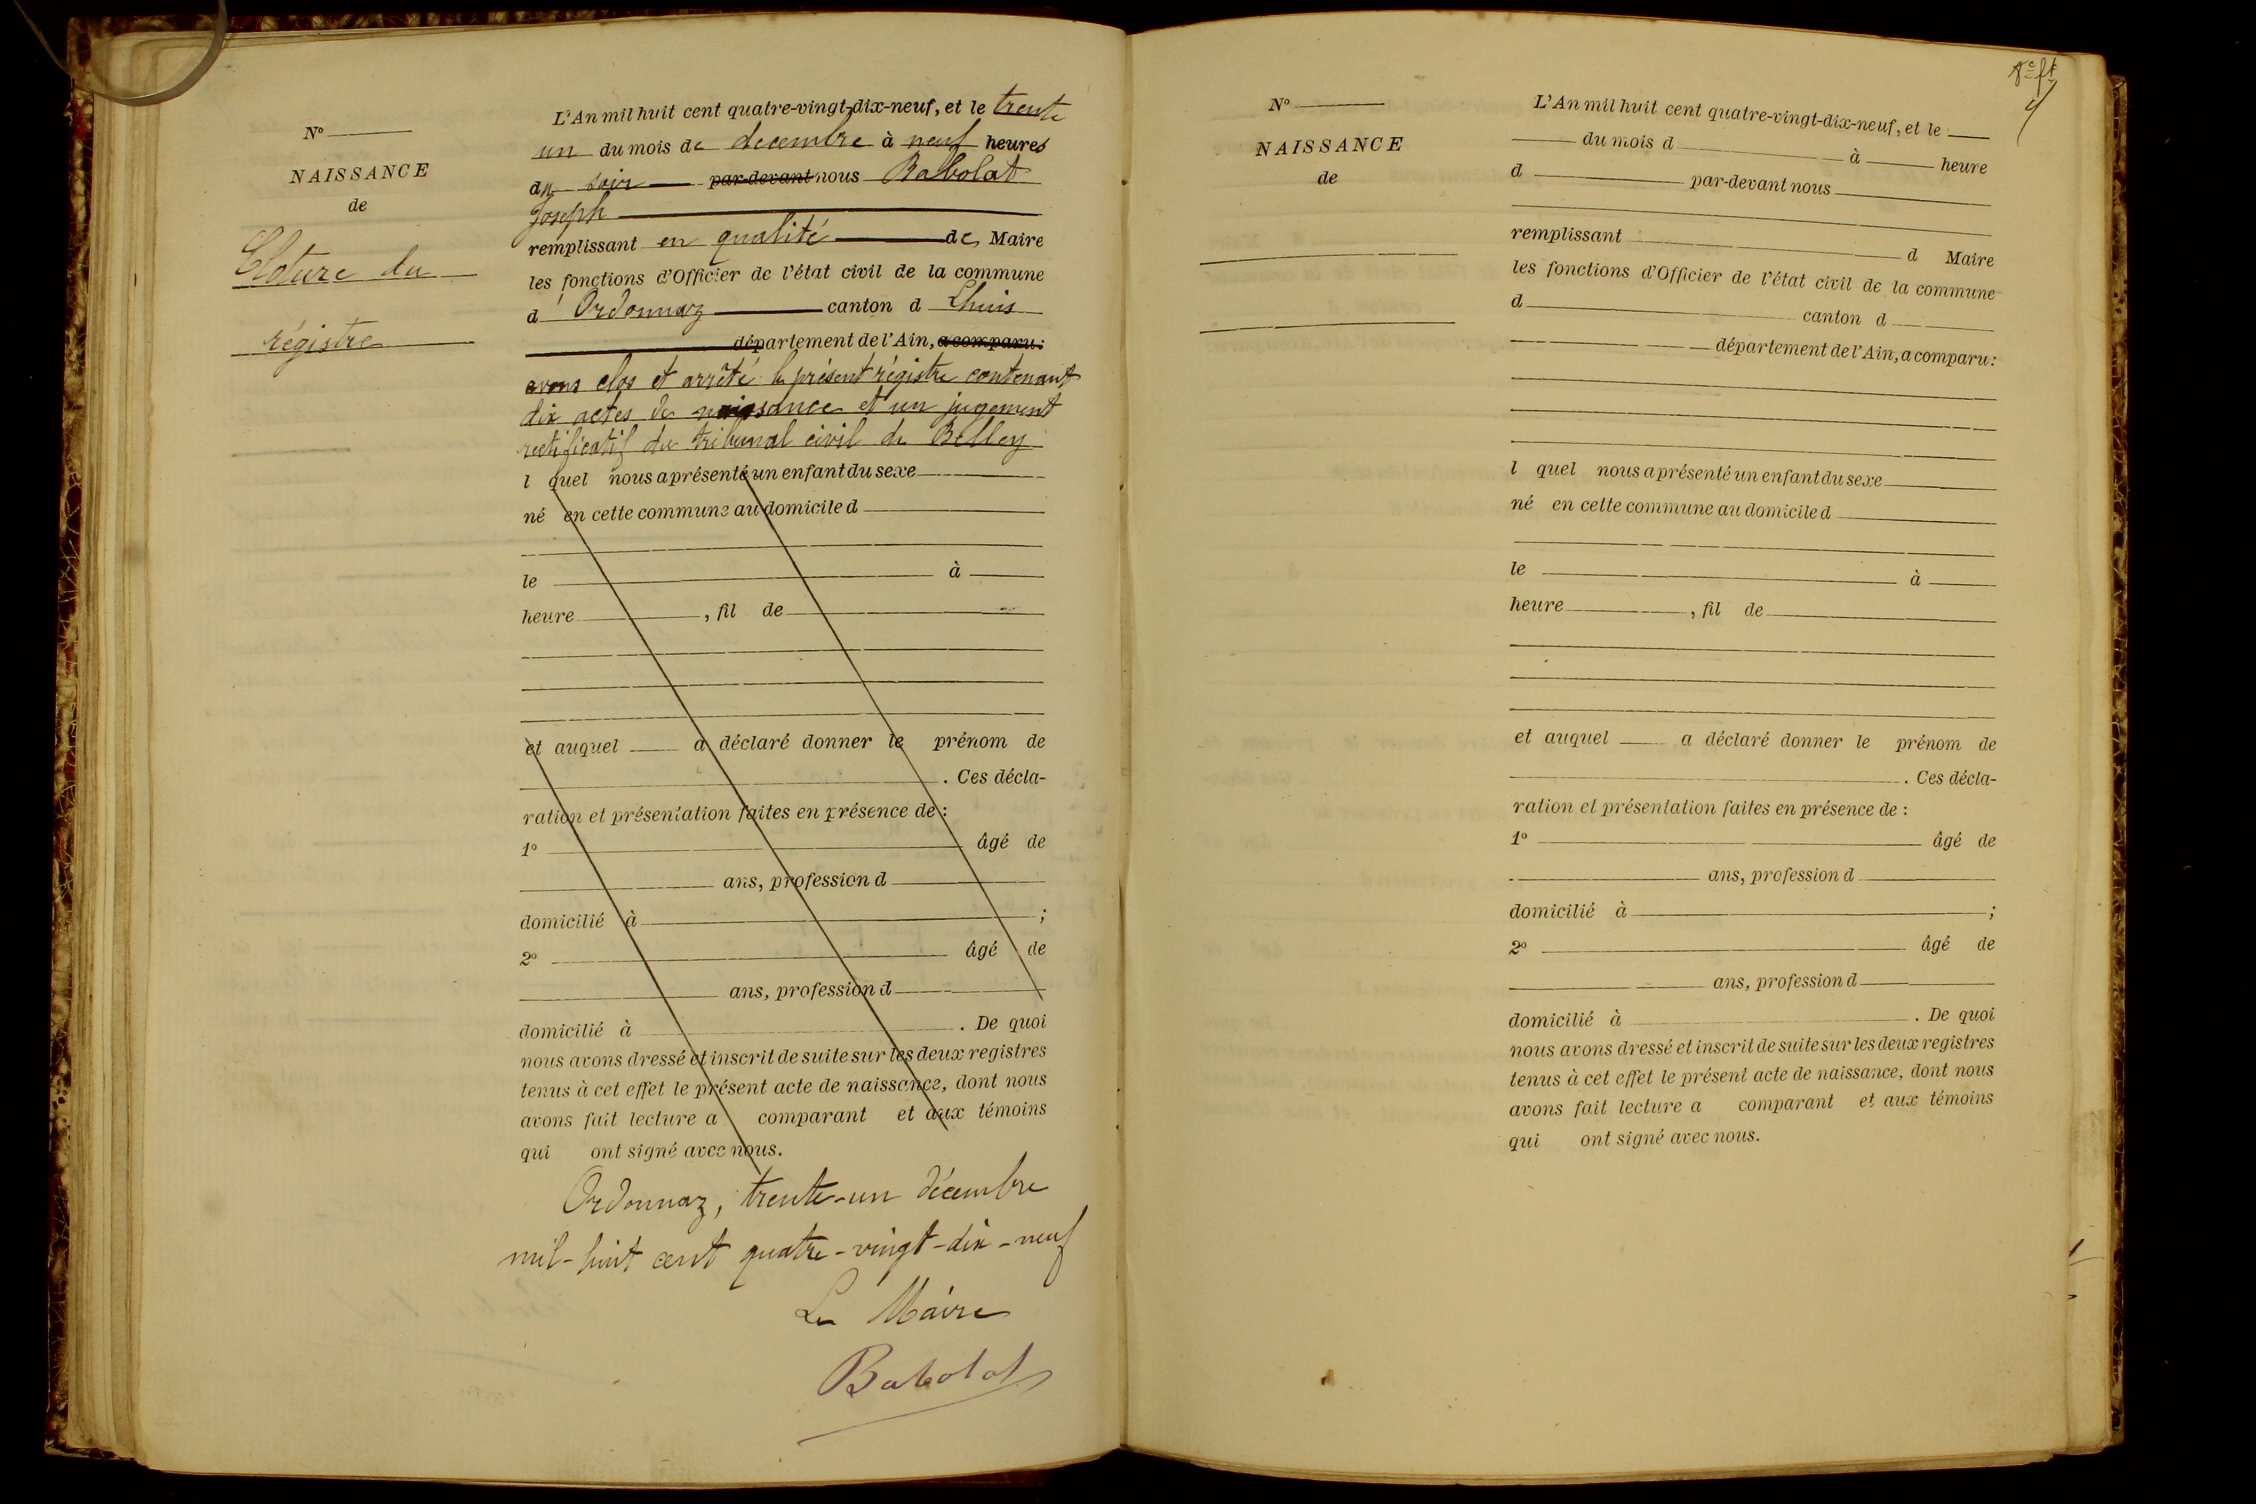 N°
NAISSANCE
de
Clôture du
régistre
L'An mil huit cent quatre-vingt-dix-neuf, et le trente
un du mois de decembre à neuf heures
du soir par-devant nous Babolat
Joseph
remplissant en qualité de Maire
les fonctions d'Officier de l'état civil de la commune
d' Ordonnaz canton d Lhuis
département de l'Ain, a comparu:
avons clos et arrêté le présent régistre contenant
dix actes de naissance et un jugement
rectificatif du tribunal civil de Belley
l quel nous a présenté un enfant du sexe
né en cette commune au domicile d
le à
heure , fil de
et auquel a déclaré donner le prénom de
. Ces décla-
ration et présentation faites en présence de :
1° âgé de
ans, profession d
domicilié à ;
2° âgé de
ans, profession d
domicilié à . De quoi
nous avons dressé et inscrit de suite sur les deux registres
tenus à cet effet le présent acte de naissance, dont nous
avons fait lecture a comparant et aux témoins
qui ont signé avec nous.
Ordonnaz, trente-un décembre
mil-huit cent quatre-vingt-dix-neuf
Le Maire
Babolat
N°
NAISSANCE
de
L'An mil huit cent quatre-vingt-dix-neuf, et le
du mois d à heure
d par-devant nous
remplissant d Maire
les fonctions d'Officier de l'état civil de la commune
d canton d
département de l'Ain, a comparu:
l quel nous a présenté un enfant du sexe
né en cette commune au domicile d
le à
heure , fil de
et auquel a déclaré donner le prénom de
. Ces décla-
ration et présentation faites en présence de :
1° âgé de
ans, profession d
domicilié à ;
2° âgé de
ans, profession d
domicilié à . De quoi
nous avons dressé et inscrit de suite sur les deux registres
tenus à cet effet le présent acte de naissance, dont nous
avons fait lecture a comparant et aux témoins
qui ont signé avec nous.